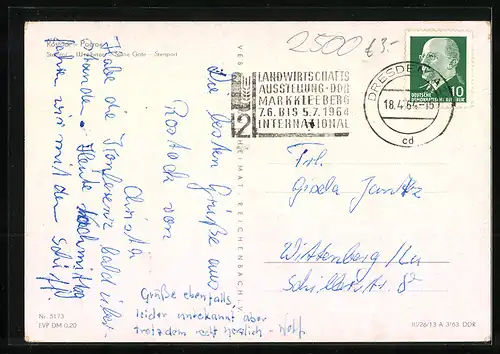 2500 £3-
Rostock-
LANDWIRTSCHAFTS
AUSSTELLUNG·DDR
MARKKLEEBERG
7.6. BIS 5.7.1964
INTERNATIONAL
2
DRESDEN
18.4.64-15
cd
10
DEUTSCHE
VEB
HEIMAT REICHENBACH I. V.
Die besten Grüße aus
Rostock von
Christa
Habe die Konferenz bald über-
standen. Heute Nachmittag
fahren wir mit dem Schiff.
Grüße ebenfalls,
leider unbekannt aber
trotzdem recht herzlich - Wolf
Frl.
Gisela
Wittenberg/Lu
Schillerstr. 82
Nr. 5173
EVP DM 0,20
III/26/13 A 3/63 DDR